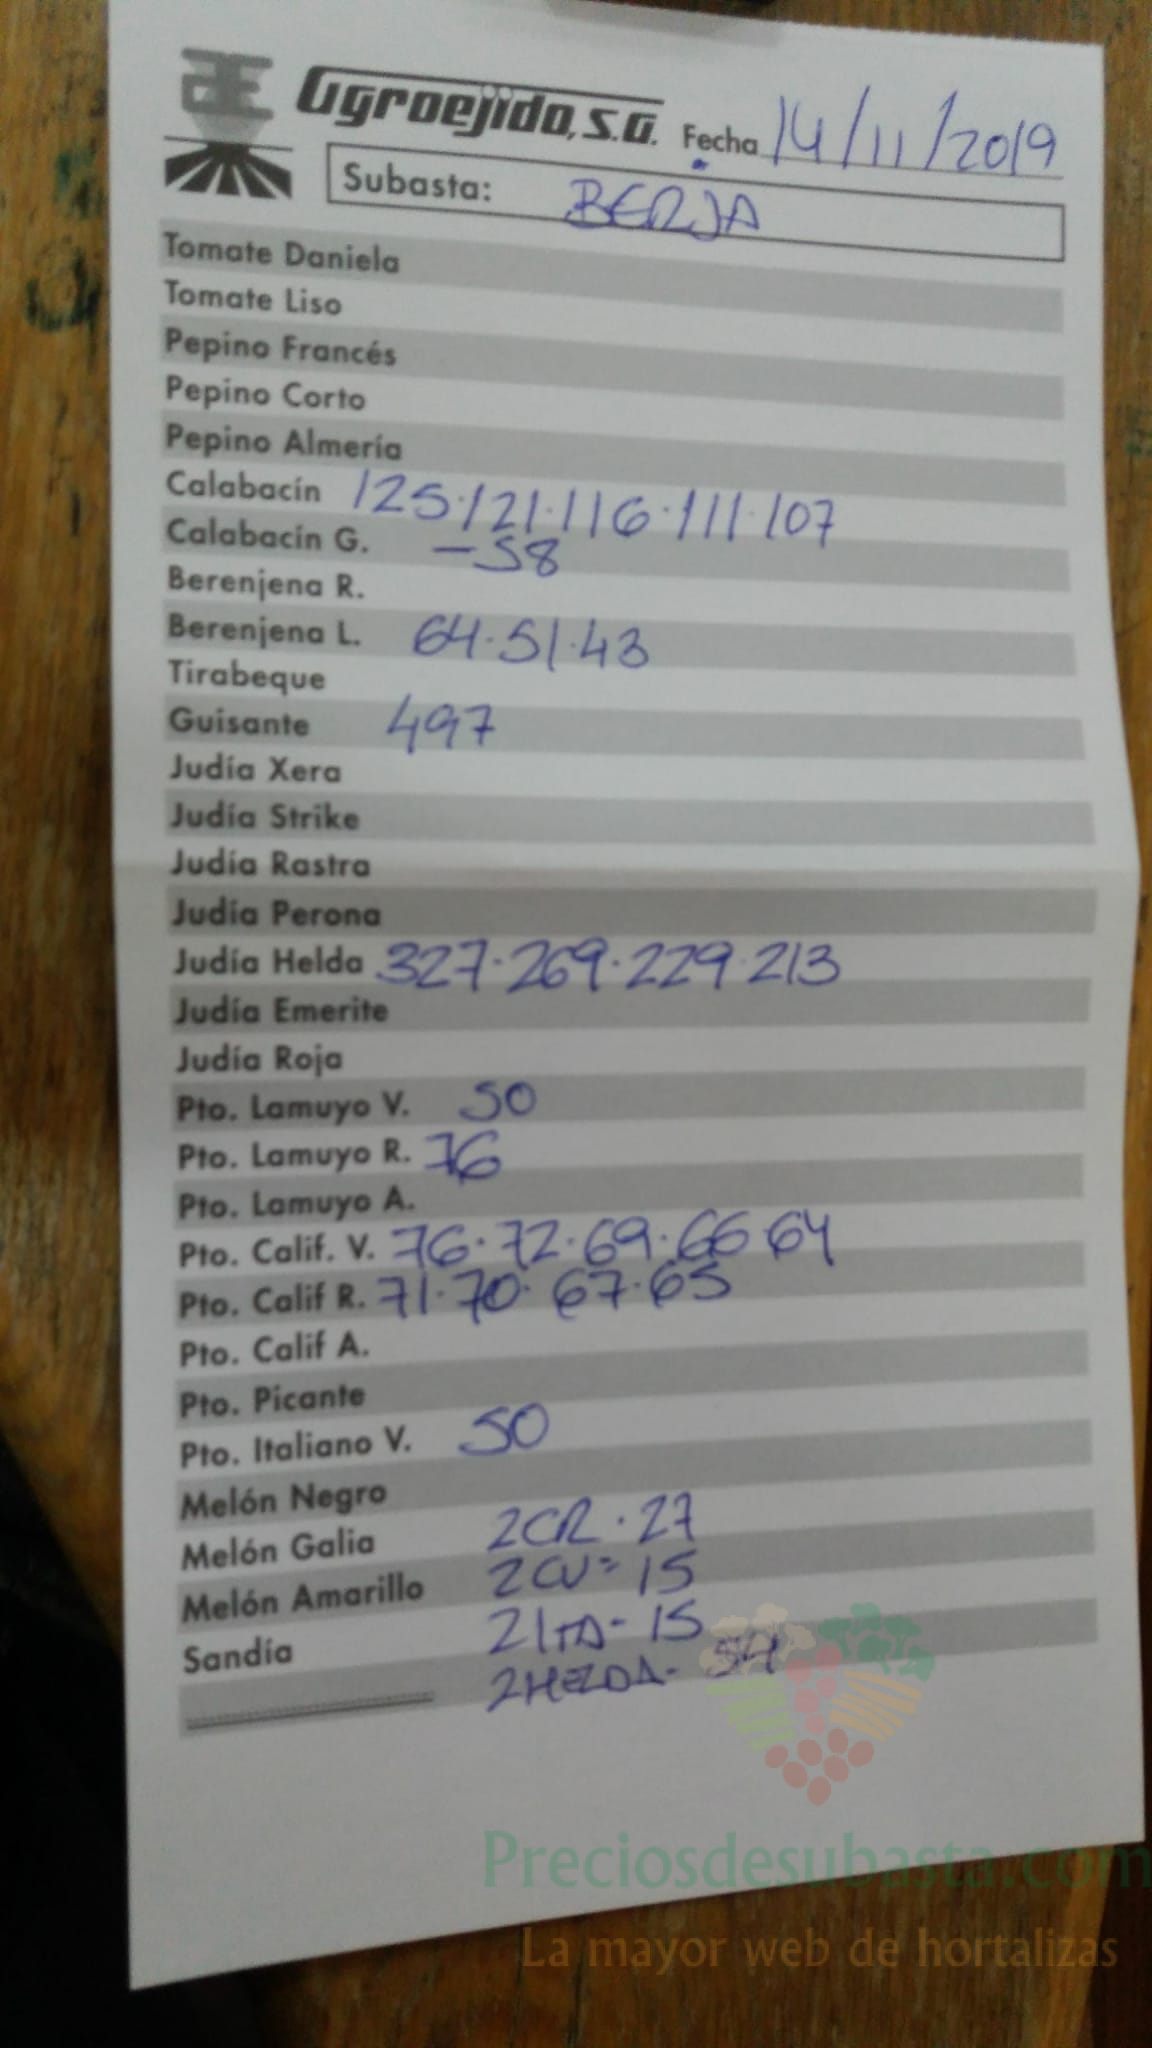 Agroejido, S.A. Fecha 14/11/2019
Subasta: BERJA
Tomate Daniela
Tomate Liso
Pepino Francés
Pepino Corto
Pepino Almería
Calabacín 125·121·116·111·107
Calabacín G. -58
Berenjena R.
Berenjena L. 64·51·43
Tirabeque
Guisante 497
Judía Xera
Judía Strike
Judía Rastra
Judía Perona
Judía Helda 327·269·229·213
Judía Emerite
Judía Roja
Pto. Lamuyo V. 50
Pto. Lamuyo R. 76
Pto. Lamuyo A.
Pto. Calif. V. 76·72·69·66·64
Pto. Calif R. 71·70·67·65
Pto. Calif A.
Pto. Picante
Pto. Italiano V. 50
Melón Negro
Melón Galia 2CR·27
Melón Amarillo 2CV=15
Sandía 2ITA-15
Preciosdesubasta.com
La mayor web de hortalizas